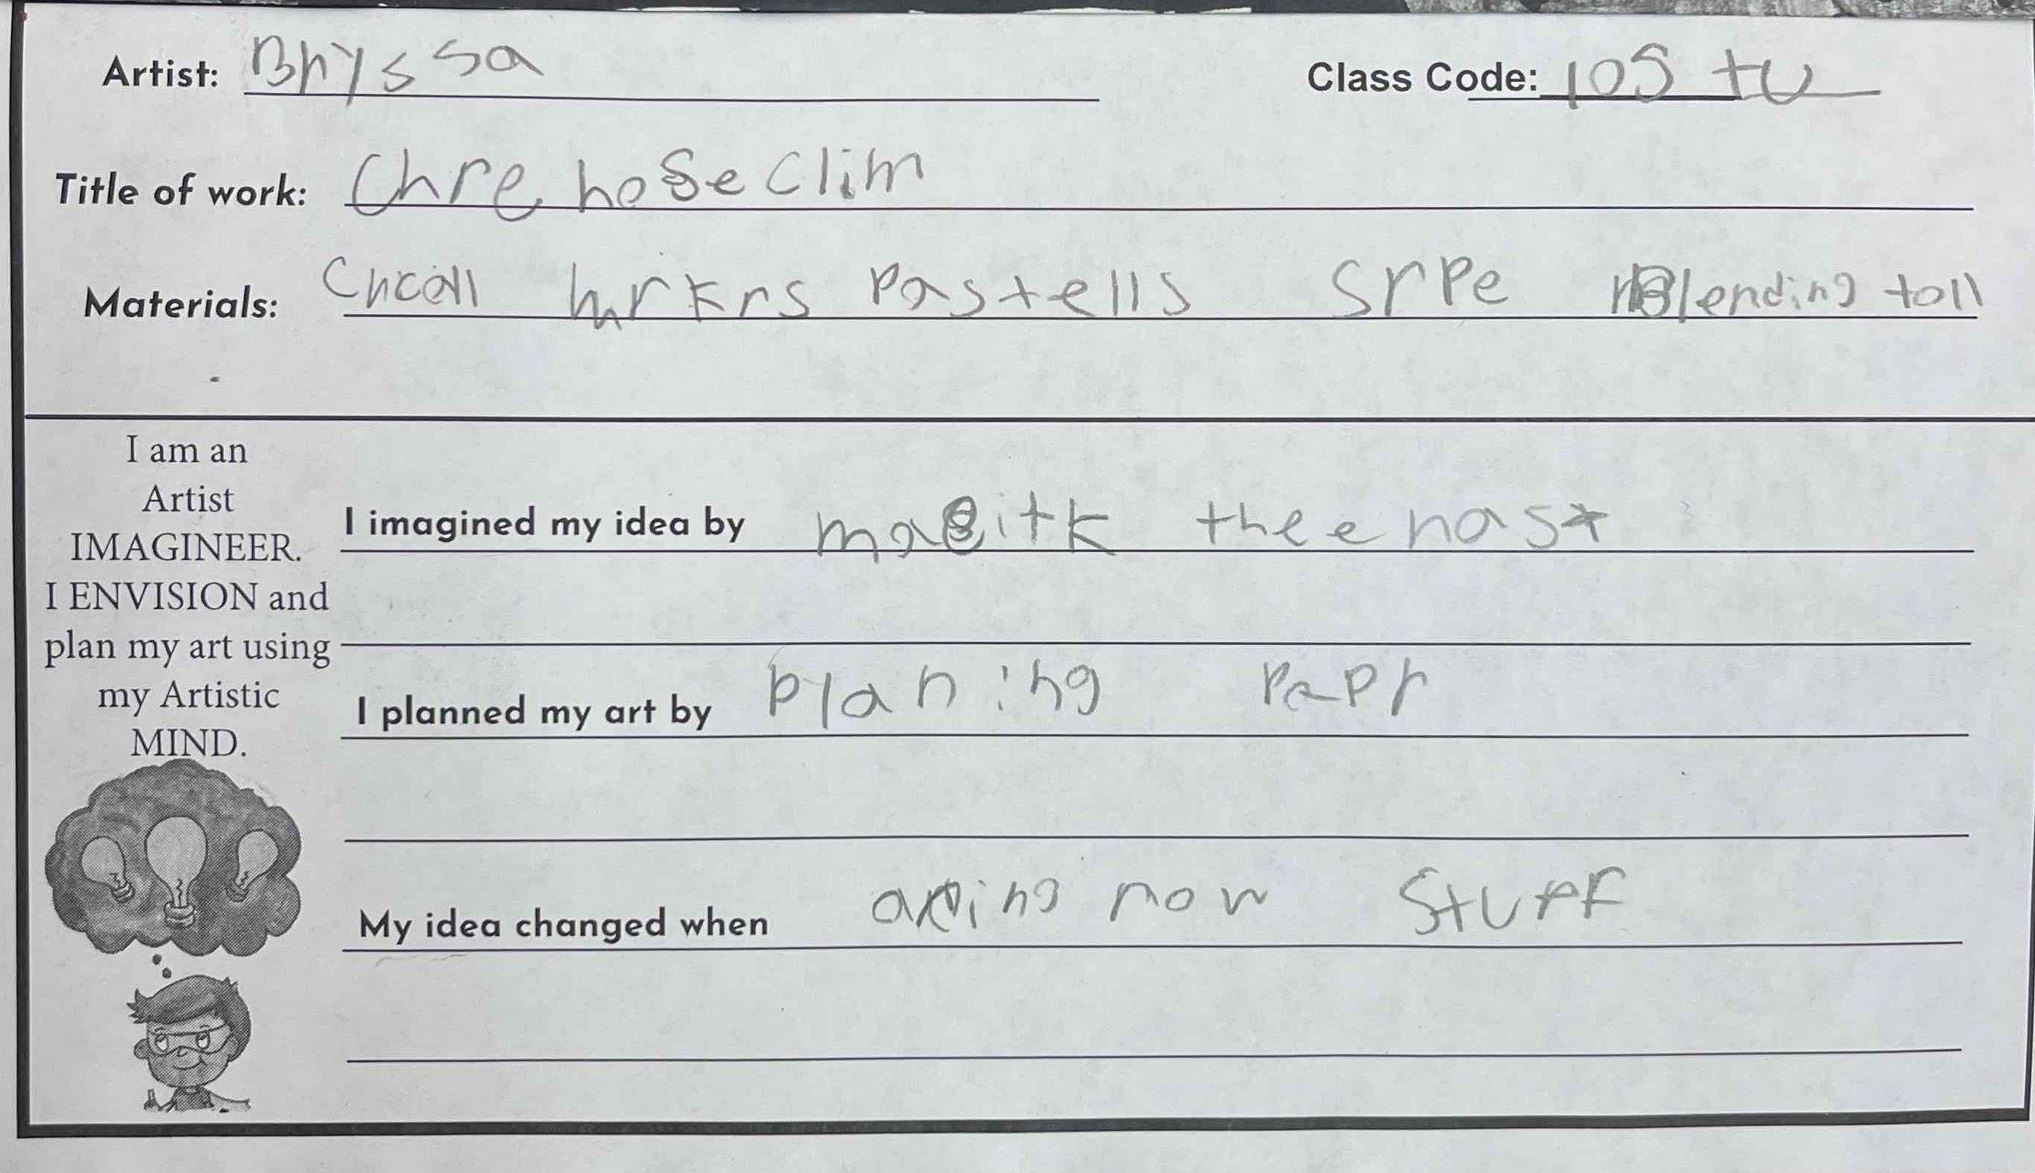 Artist: Bhyssa Class Code: 105 tu
Title of work: Chre hose clim
Materials: Chcall mrkrs Pastells SrPe Blending toll
I am an
Artist
IMAGINEER.
I ENVISION and
plan my art using
my Artistic
MIND.
I imagined my idea by thee hast
I planned my art by planing Papr
My idea changed when now Stuff